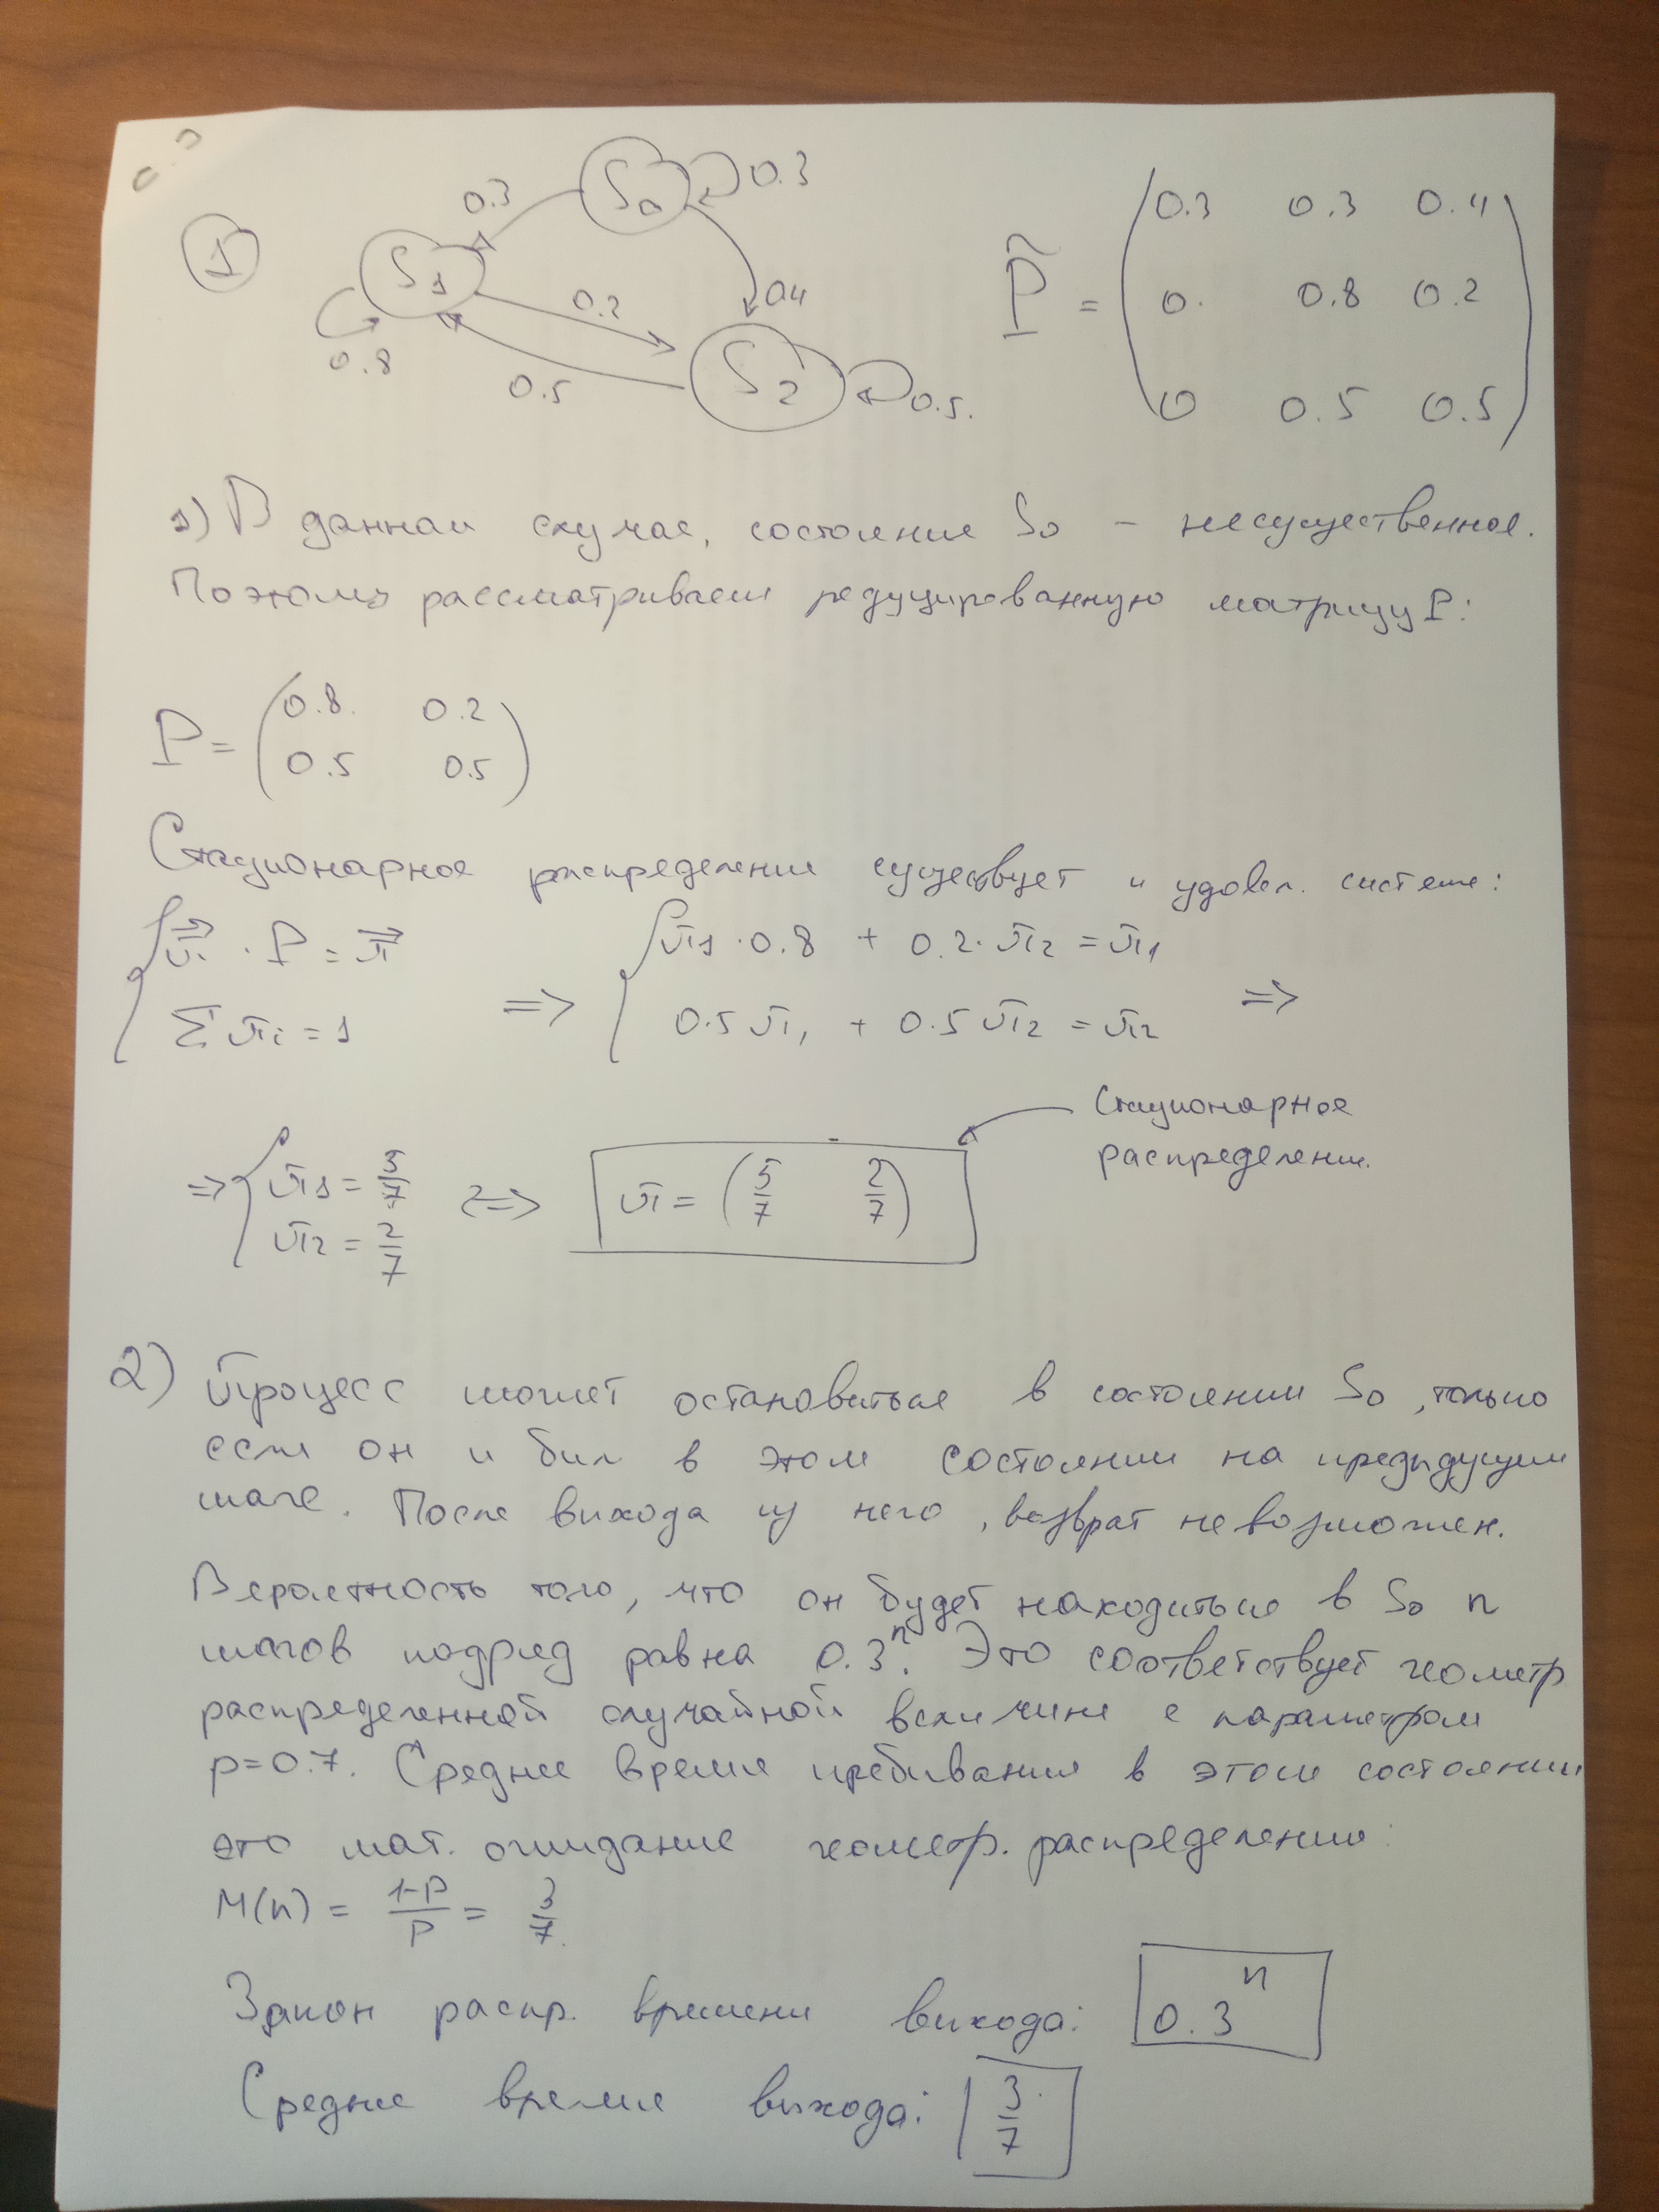 1
S₀ 0.3
0.3
S₁
0.2
0.4
0.8
0.5
S₂
0.5.
P̃ = (0.3 0.3 0.4
0. 0.8 0.2
0 0.5 0.5)
1) В данном случае, состояние S₀ – несущественное.
Поэтому рассматриваем редуцированную матрицу P:
P = (0.8. 0.2
0.5 0.5)
Стационарное распределение существует и удовл. системе:
{ π⃗ · P = π⃗
Σπᵢ = 1
=> { π₁ · 0.8 + 0.2 · π₂ = π₁
0.5 π₁ + 0.5 π₂ = π₂ =>
=> { π₁ = 5/7
π₂ = 2/7
<=> π = (5/7 2/7)
Стационарное
распределение.
2) Процесс может остановиться в состоянии S₀, только
если он и был в этом состоянии на предыдущем
шаге. После выхода из него, возврат невозможен.
Вероятность того, что он будет находиться в S₀ n
шагов подряд равна 0.3ⁿ. Это соответствует геометр
распределенной случайной величине с параметром
p=0.7. Среднее время пребывания в этом состоянии
это мат. ожидание геометр. распределения:
M(n) = (1-p)/p = 3/7.
Закон распр. времени выхода: 0.3ⁿ
Среднее время выхода: 3/7